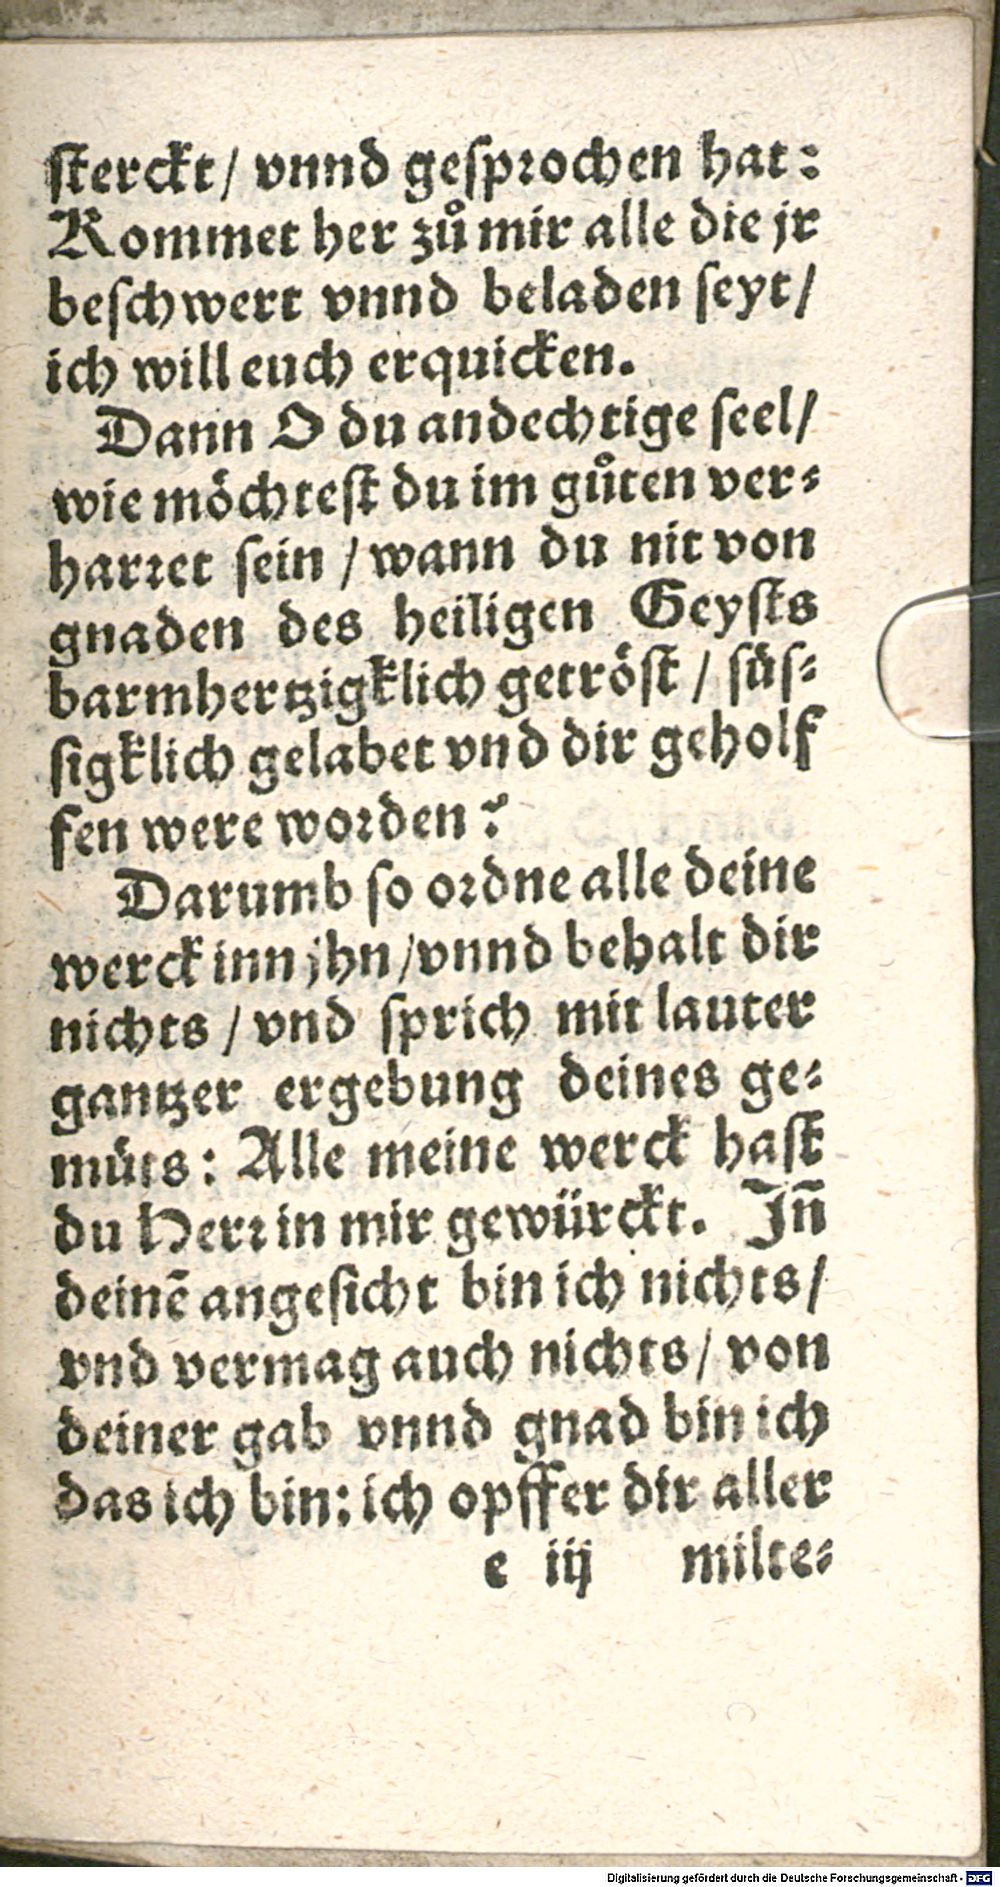 sterckt / vnnd gesprochen hat:
Kommet her zů mir alle die jr
beschwert vnnd beladen seyt /
ich will euch erquicken.
Dann O du andechtige seel /
wie möchtest du im gůten ver-
harret sein / wann du nit von
gnaden des heiligen Geysts
barmhertzigklich getröst / süs-
sigklich gelabet vnd dir geholf
fen were worden?
Darumb so ordne alle deine
werck inn jhn / vnnd behalt dir
nichts / vnd sprich mit lauter
gantzer ergebung deines ge-
müts: Alle meine werck hast
du Herr in mir gewürckt. Jn̄
deinē angesicht bin ich nichts /
vnd vermag auch nichts / von
deiner gab vnnd gnad bin ich
das ich bin: ich opffer dir aller
e iij milte-
Digitalisierung gefördert durch die Deutsche Forschungsgemeinschaft - DFG